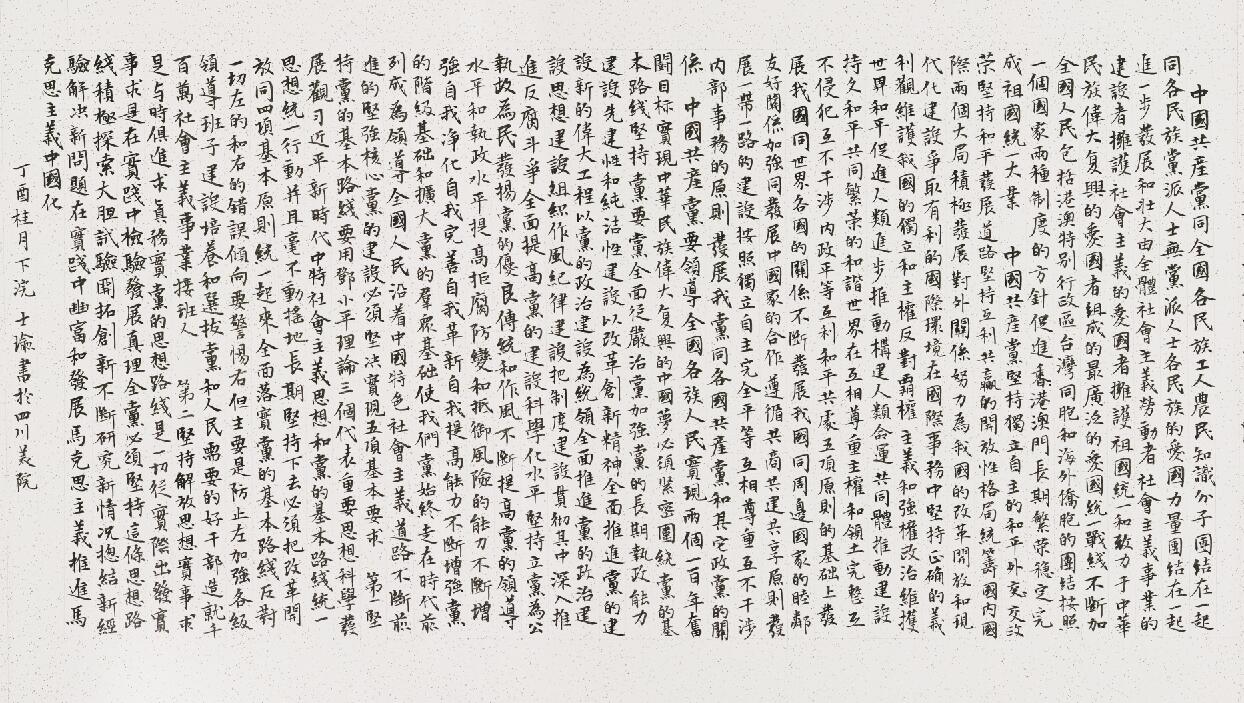 中國共產黨同全國各民族工人農民知識分子團結在一起
同各民族黨派人士無黨派人士各民族的愛國力量團結在一起
進一步發展和壯大由全體社會主義勞動者社會主義事業的
建設者擁護社會主義的愛國者擁護祖國統一和致力于中華
民族偉大复興的愛國者組成的最廣泛的愛國統一戰綫不斷加
全國人民包括港澳特别行政區台灣同胞和海外僑胞的團結按照
一個國家兩種制度的方針促進香港澳門長期繁荣穩定完
成祖國統一大業 中國共產黨堅持獨立自主的和平外交政
荣堅持和平發展道路堅持互利共贏的開放性格局統籌國内國
際兩個大局積極發展對外關係努力為我國的改革開放和現
代化建設爭取有利的國際環境在國際事務中堅持正确的義
利觀維護叙國的獨立和主權反對霸權主義和強權政治維護
世界和平促進人類進步推動構建人類命運共同體推動建設
持久和平共同繁荣的和諧世界在互相尊重主權和領土完整互
不侵犯互不干涉内政平等互利和平共處五項原則的基础上發
展我國同世界各國的關係不斷發展我國同周邊國家的睦鄰
友好關係加強同發展中國家的合作遵循共商共建共享原則發
展一帶一路的建設按照獨立自主完全平等互相尊重互不干涉
内部事務的原則發展我黨同各國共產黨和其它政黨的關
係 中國共產黨要領導全國各族人民實現兩個一百年奮
鬪目标實現中華民族偉大复興的中國夢必須緊密團繞黨的基
本路綫堅持黨要黨全面從嚴治黨加強黨的長期執政能力
建設先建性和純洁性建設以改革創新精神全面推進黨的建
設新的偉大工程以黨的政治建設為統領全面推進黨的政治建
設思想建設組織作風紀律建設把制度建設貫彻其中深入推
進反腐斗爭全面提高黨的建設科學化水平堅持立黨為公
執政為民發揚黨的優良傳統和作風不斷提高黨的領導
水平和執政水平提高拒腐防變和抵御風險的能力不斷增
強自我净化自我完善自我革新自我提高能力不斷增強黨
的階級基础和擴大黨的羣衆基础使我們黨始終走在時代前
列成為領導全國人民沿着中國特色社會主義道路不斷前
進的堅強核心黨的建設必須堅决實現五項基本要求 第堅
持黨的基本路綫要用鄧小平理論三個代表重要思想科學發
展觀習近平新時代中特社會主義思想和黨的基本路綫統一
思想統一行動并且毫不動搖地長期堅持下去必須把改革開
放同四項基本原則統一起來全面落實黨的基本路綫反對
一切左的和右的錯誤傾向要警惕右但主要是防止左加強各級
領導班子建設培养和選拔黨和人民需要的好干部造就千
百萬社會主義事業接班人 第二堅持解放思想實事求
是與時俱進求真務實黨的思想路綫是一切從實際出發實
事求是在實踐中檢驗發展真理全黨必須堅持這條思想路
綫積極探索大胆試驗開拓創新不斷研究新情况揔結新經
驗解决新問題在實踐中豐富和發展馬克思主義推進馬
克思主義中國化
丁酉桂月下浣 士瑜書於四川美院